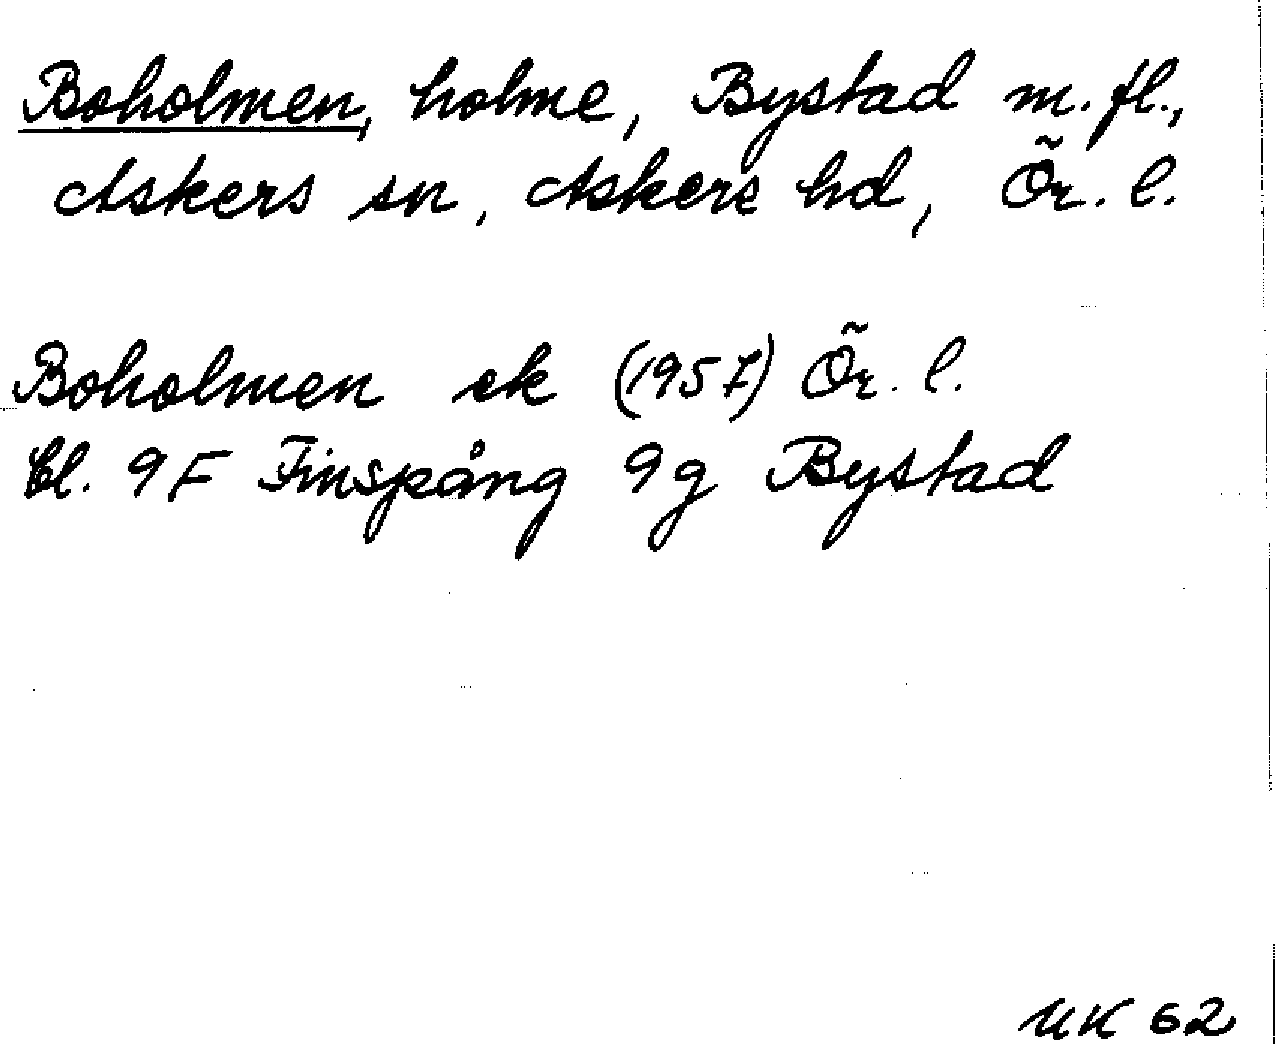 Boholmen, holme, Bystad m.fl.,
Askers sn, Askers hd, Ör. l.
Boholmen ek (1957) Ör. l.
bl. 9F Finspång 9g Bystad
UK 62